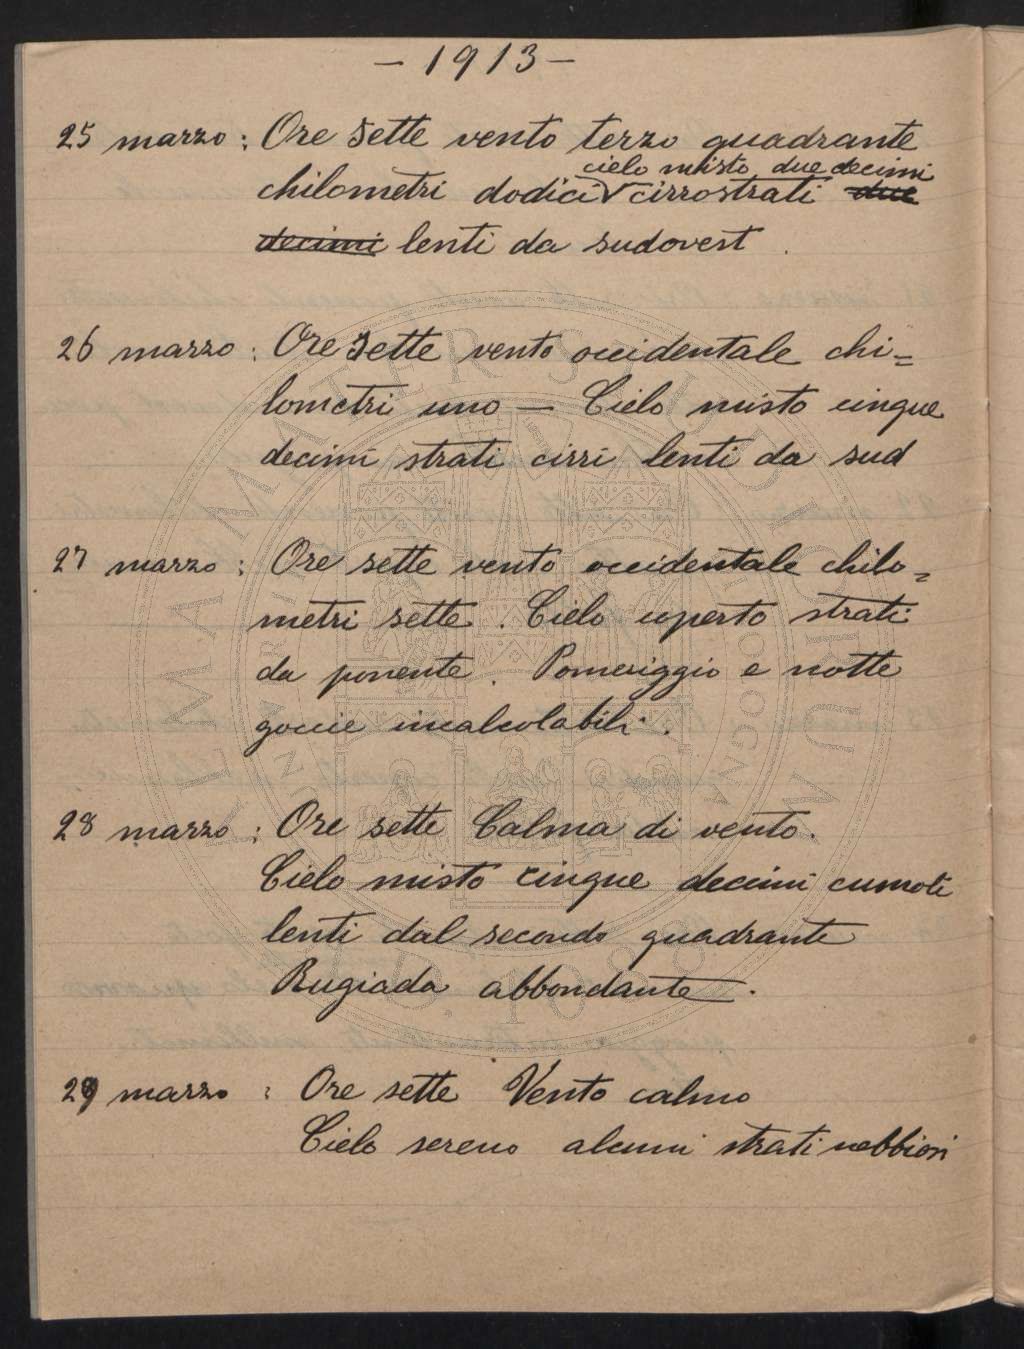 - 1913 -
25 marzo : Ore sette vento terzo quadrante
cielo misto due decimi
chilometri dodici cirrostrati due
decimi lenti da sudovest .
26 marzo : Ore sette vento occidentale chi=
lometri uno — Cielo misto cinque
decimi strati cirri lenti da sud
27 marzo : Ore sette vento occidentale chilo=
metri sette . Cielo coperto strati
da ponente . Pomeriggio e notte
goccie incalcolabili .
28 marzo : Ore sette Calma di vento .
Cielo misto cinque decimi cumoli
lenti dal secondo quadrante
Rugiada abbondante .
29 marzo : Ore sette Vento calmo
Cielo sereno alcuni strati nebbiosi
ALMA MATER STUDIORUM